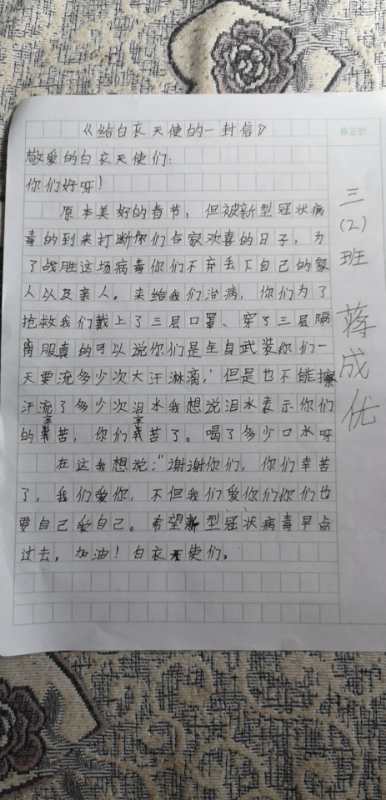 《给白衣天使的一封信》
敬爱的白衣天使们:
你们好呀!
原本美好的春节,但被新型冠状病
毒的到来打断你们合家欢喜的日子,为
了战胜这场病毒你们不弃丢下自己的家
人以及亲人。来给我们治病,你们为了
抢救我们戴上了三层口罩、穿了三层隔
离服真的可以说你们是全自武装你们一
天要流多少次大汗淋漓,但是也不能擦
汗流了多少次泪水我想说泪水表示你们
的辛苦,你们辛苦了。喝了多少口水呀
在这我想说:“谢谢你们,你们幸苦
了,我们爱你,不但我们爱你们你们也
要自己爱自己。希望新型冠状病毒早点
过去,加油!白衣天使们。
三(2)班 蒋成优